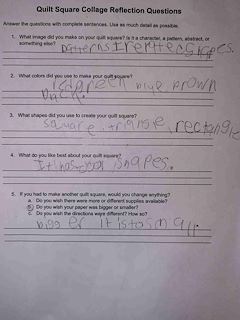 Quilt Square Collage Reflection Questions
Answer the questions with complete sentences. Use as much detail as possible.
1. What image did you make on your quilt square? Is it a character, a pattern, abstract, or
something else?
2. What colors did you use to make your quilt square?
green blue brown
3. What shapes did you use to create your quilt square?
square triangle, rectangle
4. What do you like best about your quilt square?
It has shapes.
5. If you had to make another quilt square, would you change anything?
a. Do you wish there were more or different supplies available?
b. Do you wish your paper was bigger or smaller?
c. Do you wish the directions were different? How so?
bigger it is